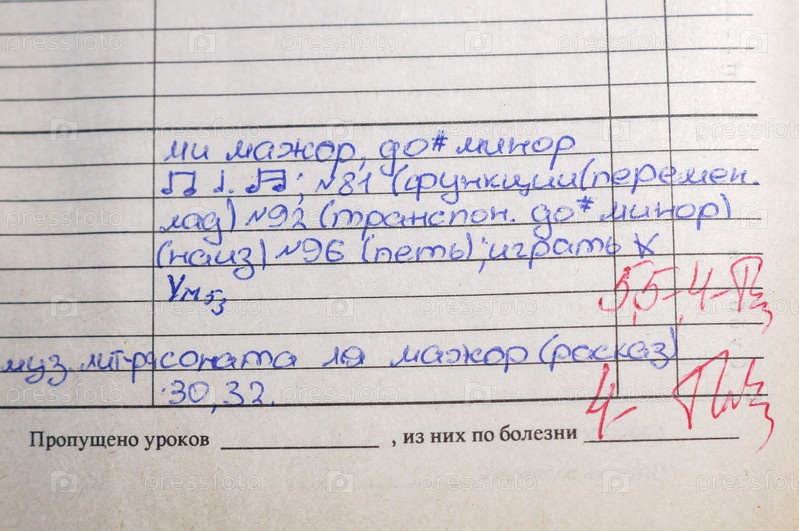 ми мажор, до# минор
♫ ♩. ♫; №81 (функции(перемен.
лад) №92 (транспон. до# минор)
(наиз) №96 (петь); играть
Ум5/3
5,5-,4-
муз. лит-ра соната ля мажор (расказ)
30, 32.
4-
Пропущено уроков ____________ , из них по болезни ____________